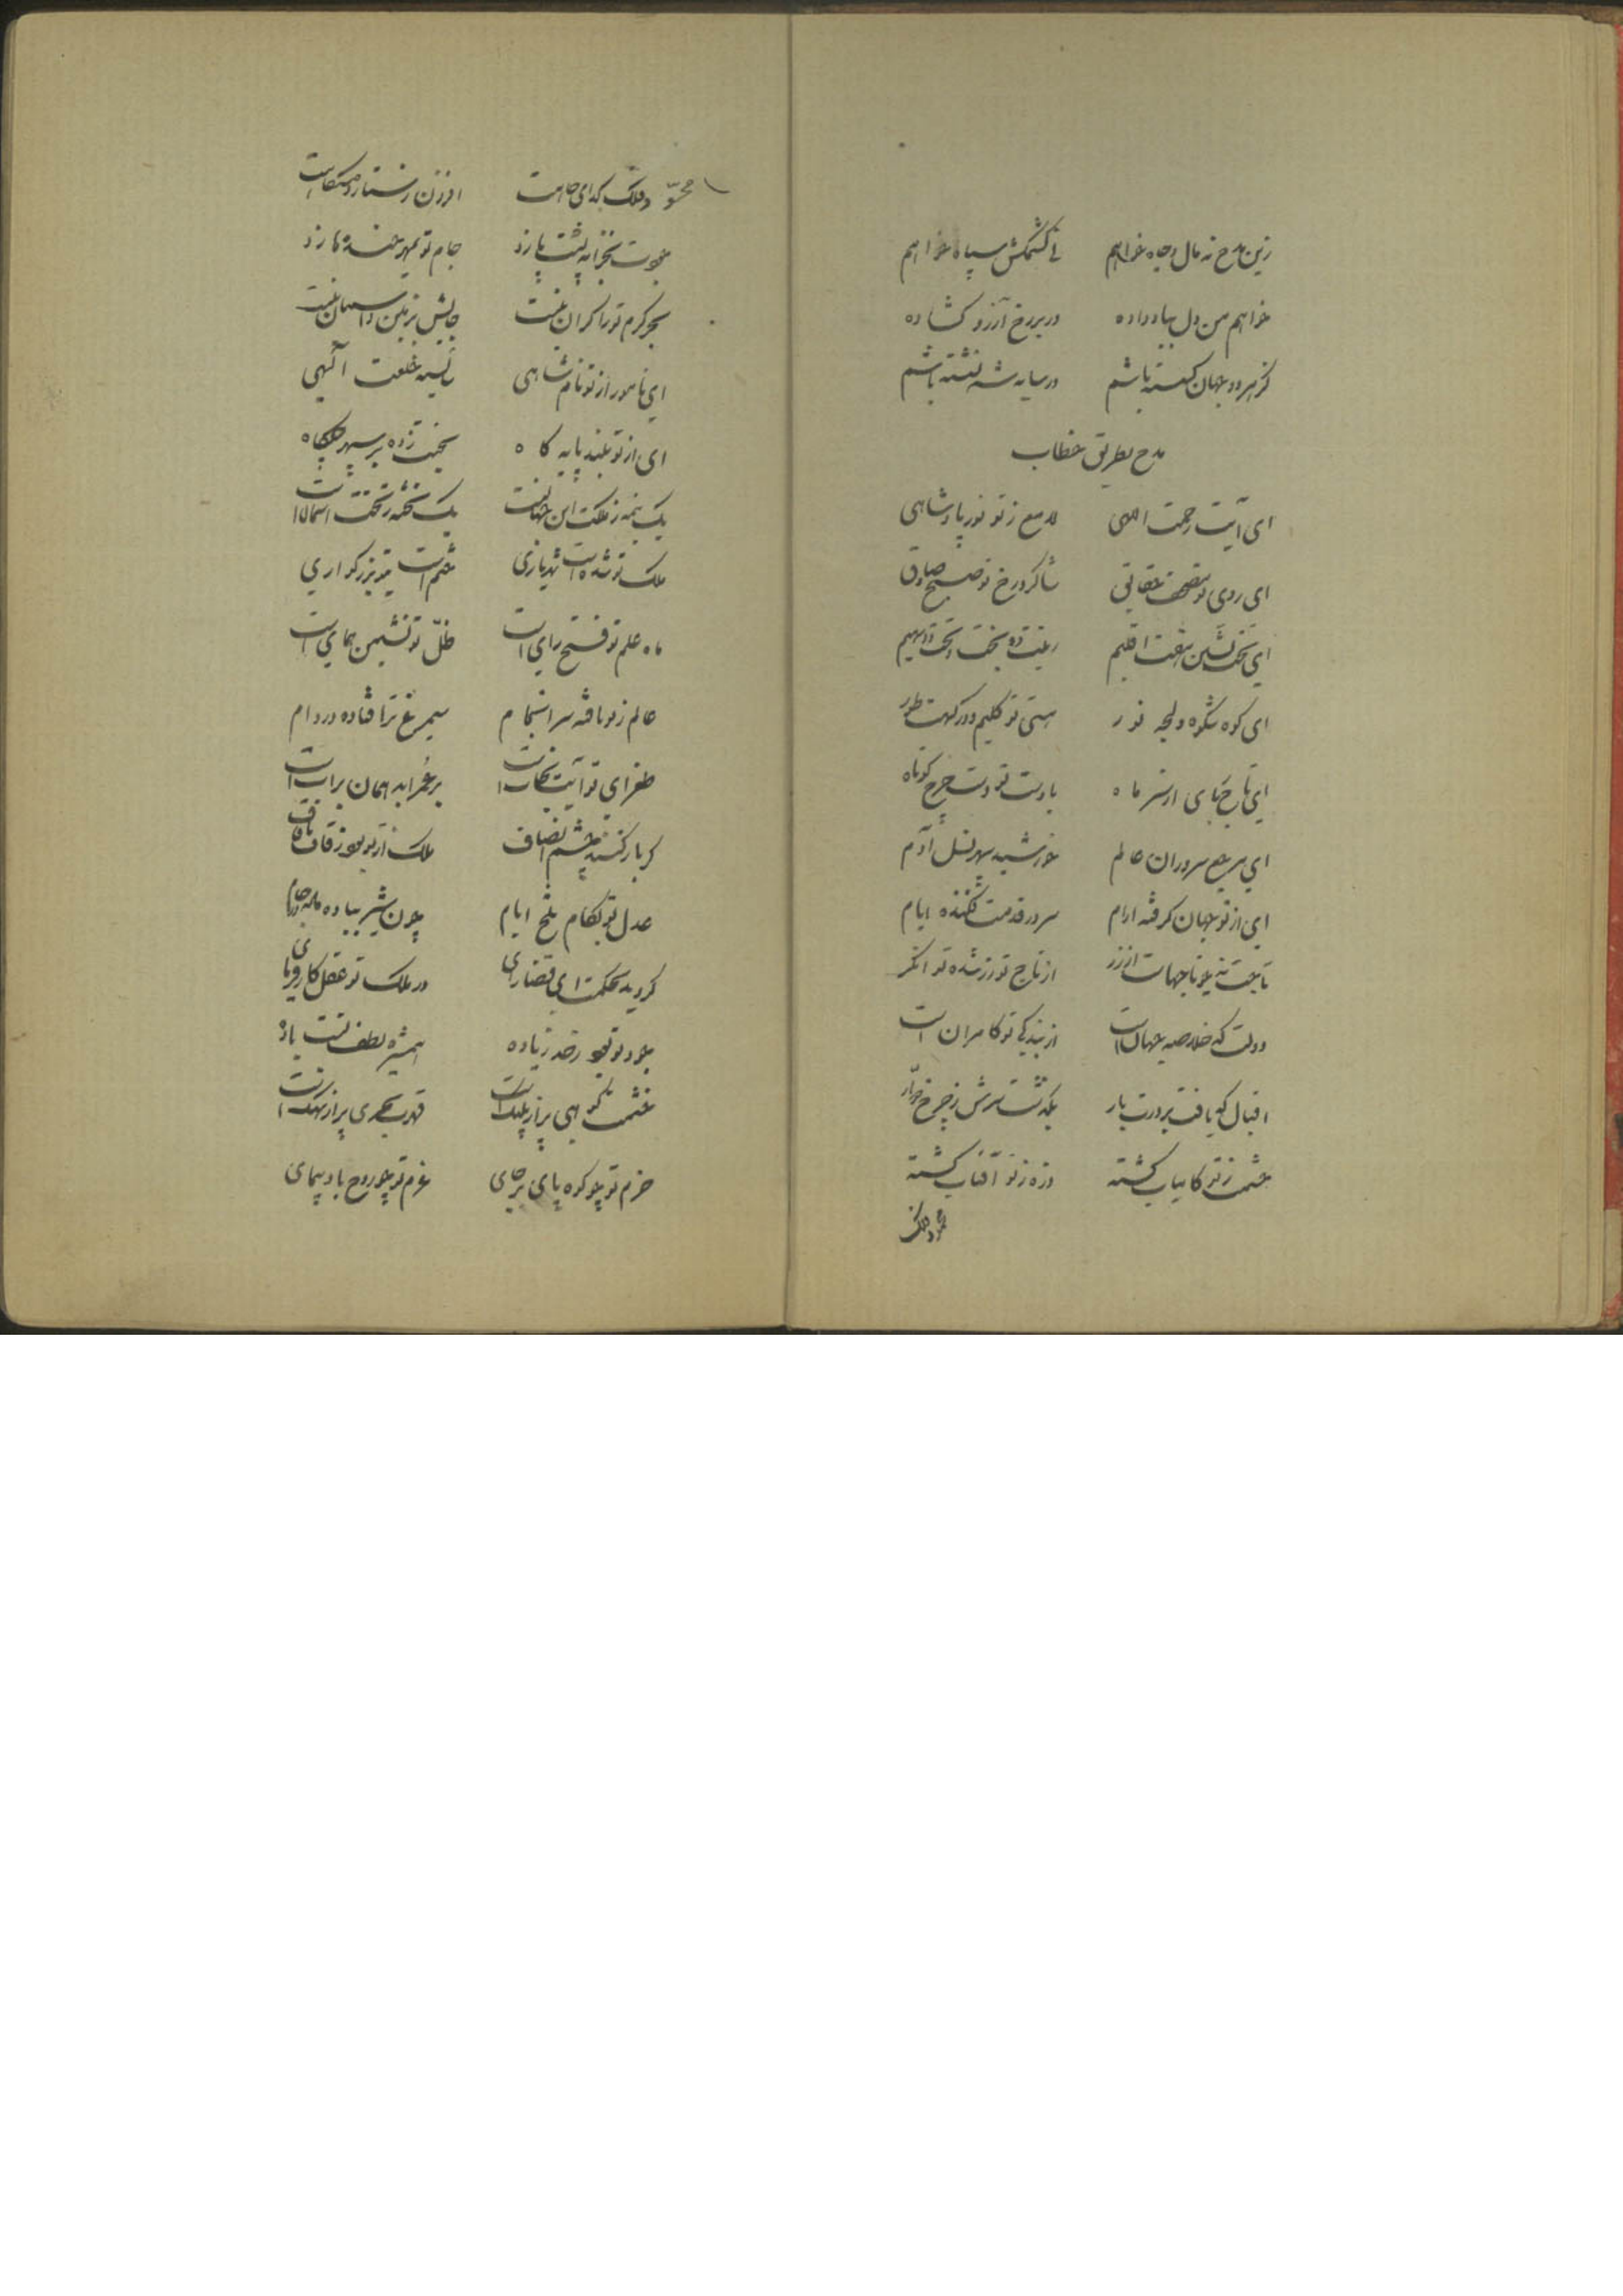 زین مدح نه مال و جاه خواهم نی کشمکش سپاه خواهم
خواهم من دل بباد داده در بر رخ آرزو کشاده
کز هر دو جهان کسسته باشم در سایه شه نشسته باشم
مدح بطریق خطاب
ای آیت رحمت الهی لامع ز تو نور پادشاهی
ای روی تو مصحف حقایق شاکرد رخ تو صبح صادق
ای تخت نشین هفت اقلیم زینت ده بخت و تخت و دیهیم
ای کوه شکوه و لجه نور هستی تو کلیم و درکهت طور
ای تاج ربای از سر ماه با دست تو دست چرخ کوتاه
ای مرجع سروران عالم خورشید سپهر نسل آدم
ای از تو جهان کرفته ارام سر در قدمت فکنده ایام
از تاج تو زر شده توانکر
دولت که خلاصه جهان است از بندکی تو کامران است
اقبال که یافت بر درت بار بکذشت سرش ز چرخ دوار
حشمت ز تو کامیاب کشته ذره ز تو آفتاب کشته
جودملک
ملک کدای جاهت افزون ز ستاره
جودت بخزانه پشت پا زد جام تو بمهر خنده ها زد
بحر کرم تو را کران نیست جایش بزمین و آسمان نیست
ای نامور از تو نام شاهی شایسته خلعت آلهی
ای از تو بلند پایه کاه بخت زده بر سپهر
یک نیمه ز ملکت این جهانست یک تخته ز تختت آسمان است
ملک تو شده است ختم است بتو بزرکواری
ماه علم تو فتح رای است ظلّ تو نشیمن همای است
عالم ز تو یافته سرانجام سیمرغ ترا فتاده در دام
طغرای تو آیت نجات است بر عمر ابد همان برات است
کر باز کنند چشم انصاف ملک از تو بود ز قاف تا قاف
عدل تو بکام تلخ ایام چون شیر
کردید بحکمت ای قضا رای در ملک تو عقل کارفرمای
جود تو بود ز حد زیاده همشیره لطف تست باده
خشمت کوهی پر از پلنک است قهرت بحری پر از نهنک است
حزم تو چو کوه پای بر جای عزم تو چو روح باد پیمای